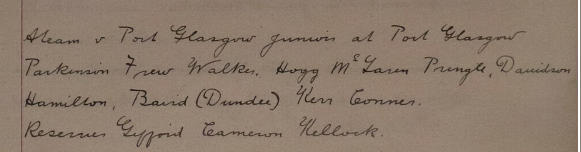 A team v Port Glasgow Juniors at Port Glasgow
Parkinson Frew Walker, Hogg McLaren Pringle, Davidson
Hamilton, Baird (Dundee) Kerr Conner.
Reserves Gifford Cameron Kellock.